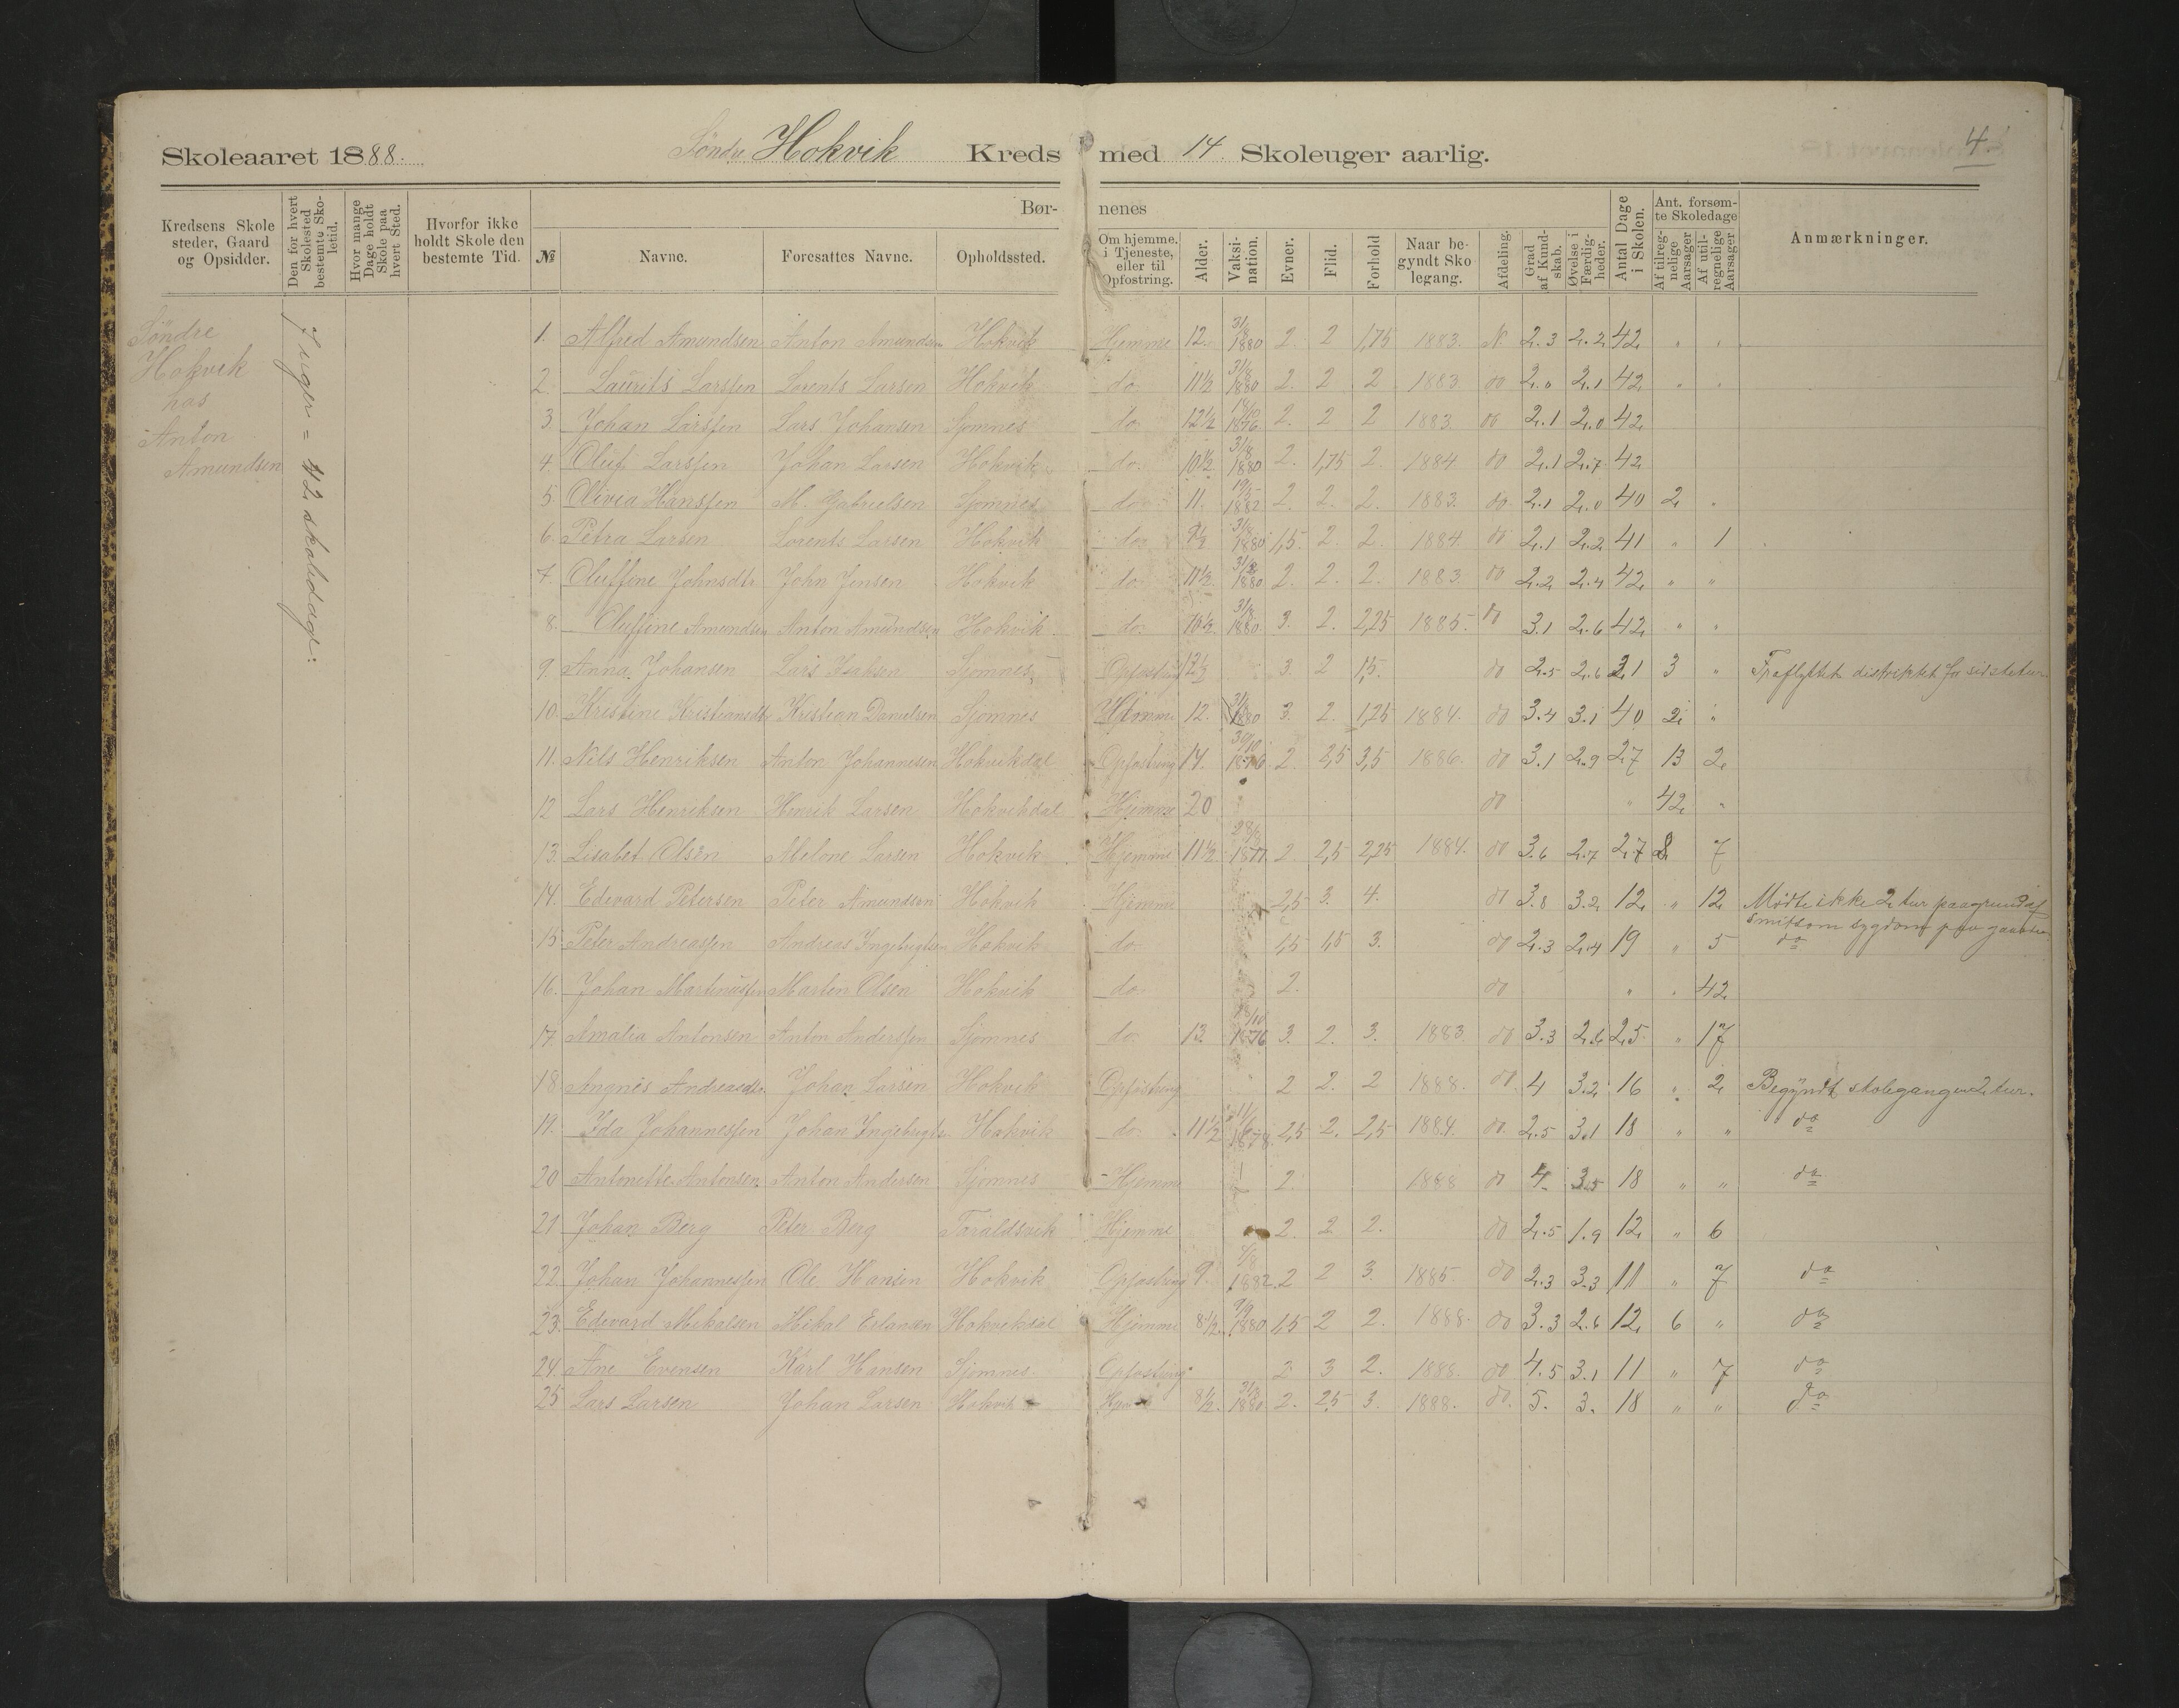 Skoleaaret 1888. Söndre Hokvik Kreds med 14 Skoleuger aarlig. 4.
Kredsens Skolesteder, Gaard og Opsidder. Den for hvert Skolested bestemte Skoletid. Hvor mange Dage holdt Skole paa hvert Sted. Hvorfor ikke holdt Skole den bestemte Tid. Børnenes Antal Dage i Skolen. Ant. forsømte Skoledage Anmærkninger.
№ Navne. Foresattes Navne. Opholdssted. Om hjemme, i Tjeneste, eller til Opfostring. Alder. Vaksination. Evner. Flid. Forhold Naar begyndt Skolegang. Afdeling. Grad af Kundskab. Øvelse i Færdigheder. Af tilregnelige Aarsager Af utilregnelige Aarsager
Söndre
Hokvik
hos
Anton
Amundsen
7 uger = 42 skoledage:
1. Alfred Amundsen Anton Amundsen Hokvik Hjemme 12. 31/8 1880 2. 2 1,75 1883. N. 2.3 2.2 42 " "
2. Laurits Larssen Lorents Larsen Hokvik do 11½ 31/8 1880 2. 2 2 1883 do 2.0 2.1 42 " "
3. Johan Larssen Lars Johansen Sjomnes do 12½ 1876 2. 2 2 1883. do 2.1 2.0 42
4. Oluf Larssen Johan Larsen Hokvik do 10½ 31/8 1880 2. 1,75 2. 1884 do 2.1 2.7 42
5. Olivia Hanssen M. Gabrielsen Sjomnes do 11. 1882 2. 2. 2. 1883. do 2.1 2.0 40 2 "
6. Petra Larsen Lorents Larsen Hokvik do 9½ 31/8 1880 1,5. 2. 2. 1884. do 2.1 2.2 41 " 1
7. Oluffine Johnsdtr John Jensen Hokvik do 11½ 31/8 1880 2. 2. 2. 1883. do 2.2 2.4 42 " "
8. Oluffine Amundsen Anton Amundsen Hokvik do 10½ 31/8 1880 3. 2. 2,25 1885. do 3.1 2.6 42 " "
9. Anna Johansen Lars Isaksen Sjomnes Opfostring 12½ 3. 2 1,5. do 2.5 2.6 21 3 " Fraflyttet distriktet for sidste tur
10. Kristine Kristiansdtr Kristian Danielsen Sjomnes Hjemme 12. 31/8 1880 3. 2. 1,25 1884. do 3.4 3.1 40 2 "
11. Nils Henriksen Anton Johannesen Hokvikdal Opfostring 14. 30/10 1876 2. 2,5 3,5 1886. do 3.1 2.9 27 13 2
12 Lars Henriksen Henrik Larsen Hokvikdal Hjemme 20 do " 42 "
13. Lisabet Olsen Melone Larsen Hokvik Hjemme 11½ 1877 2 2,5 2,25 1884. do 3.6 2.7 27 8 7
14. Edevard Petersen Peter Amundsen Hokvik Hjemme 2,5 3. 4. do 3.8 3.2 12 " 12 Mödte ikke 2 tur paagrund af
smitsom sygdom paa gaarden
15 Peter Andreassen Andreas Ingebrigtsen Hokvik do 1,5 1,5 3. do 2.3 2.4 19 " 5 do
16. Johan Martinussen Marten Olsen Hokvik do 2. do " " 42
17 Amalia Antonsen Anton Anderssen Sjomnes do 13. 1876 3. 2. 3. 1883. do 3.3 2.6 25 " 17
18 Angnes Andreasdtr Johan Larsen Hokvik Opfostring 2 2. 2 1888. do 4 3.2 16 " 2 Begyndt skolegangen 2 tur.
19. Ida Johannessen Johan Ingebrigtsn Hokvik do 11½ 1878. 2,5 2. 2,5 1884. do 2.5 3.1 18 " " do
20 Antonette Antonsen Anton Andersen Sjomnes Hjemme 2. 1888 do 4 3.5 18 " " do
21 Johan Berg Peter Berg Taraldsvik Hjemme 2. 2 2. do 2.5 1.9 12 " 6
22. Johan Johannessen Ole Hansen Hokvik Opfostring 9 1882. 2 2 3. 1885. do 2.3 3.3 11 " 7 do
23. Edevard Mikalsen Mikal Hokvikdal Hjemme 8½ 1880 1,5 2 2. 1888. do 3.3 2.6 12 6 " do
24. Ane Evensen Karl Hansen Sjomnes Opfostring 2 3 2. 1888. do 4.5 3.1 11 " 7 do
25 Lars Larsen Johan Larsen Hokvik 8½ 31/8 1880 2. 2,5 3. 1888. do 5. 3. 18 " " do